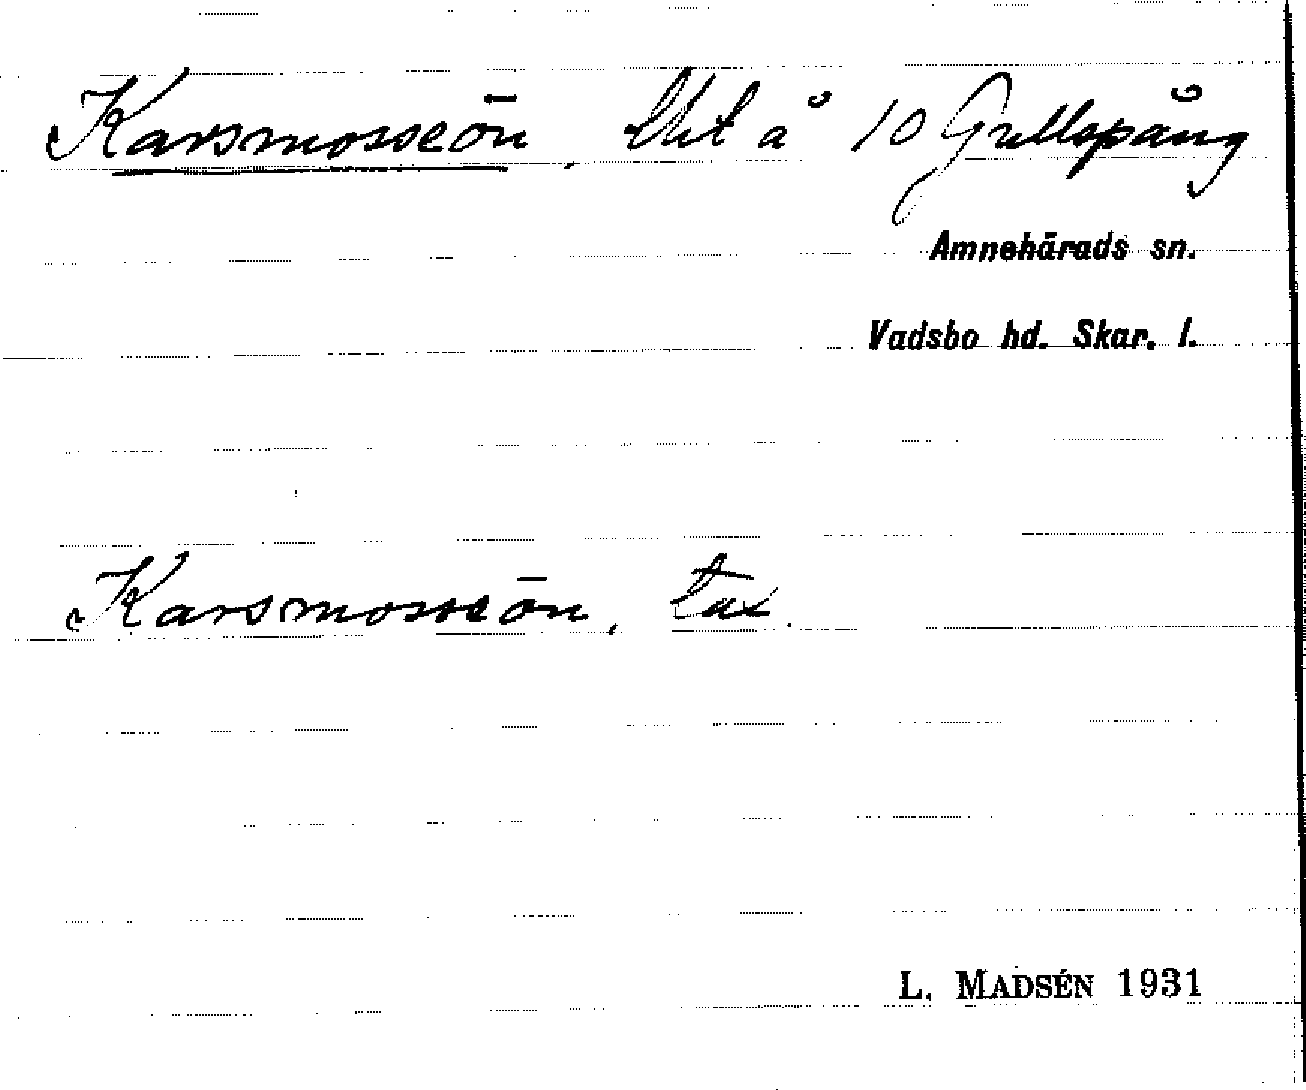 Karsmosseön, Utl å 10 Gullspång
Amnehärads sn.
Vadsbo hd. Skar. l.
Karsmosseön, tax.
L. MADSÉN 1931